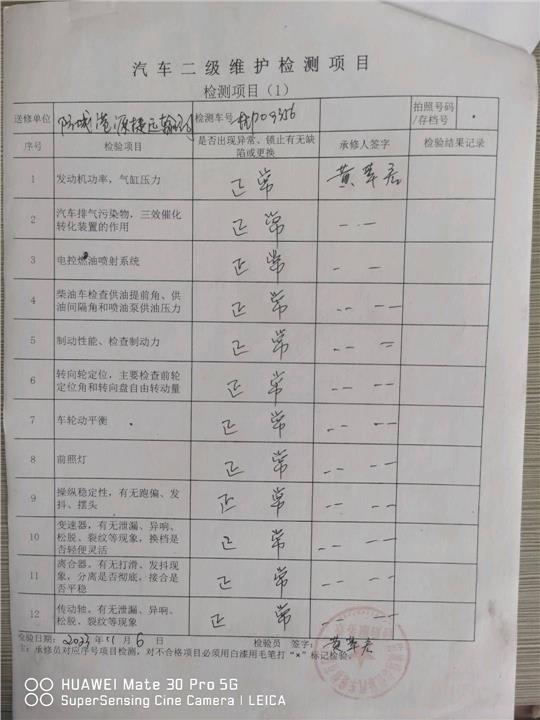 汽车二级维护检测项目
检测项目（1）
送修单位 防城港源捷运输公司 检测车号 桂P09356 拍照号码/存档号
序号 检验项目 是否出现异常、锁止有无缺陷或更换 承修人签字 检验结果记录
1 发动机功率，气缸压力 正常 黄华君
2 汽车排气污染物，三效催化转化装置的作用 正常 — —
3 电控燃油喷射系统 正常 — —
4 柴油车检查供油提前角、供油间隔角和喷油泵供油压力 正常 — —
5 制动性能、检查制动力 正常 — —
6 转向轮定位，主要检查前轮定位角和转向盘自由转动量 正常 — —
7 车轮动平衡 正常 — —
8 前照灯 正常 — —
9 操纵稳定性，有无跑偏、发抖、摆头 正常 — —
10 变速器，有无泄漏、异响、松脱、裂纹等现象，换档是否轻便灵活 正常 — —
11 离合器，有无打滑、发抖现象，分离是否彻底，接合是否平稳 正常 — —
12 传动轴，有无泄漏、异响、松脱、裂纹等现象 正常 — —
检验日期：2023年11月6日 检验员 签字：黄华君
注：承修员对应序号项目检测，对不合格项目必须用白漆用毛笔打“×”标记检验。
HUAWEI Mate 30 Pro 5G
SuperSensing Cine Camera | LEICA